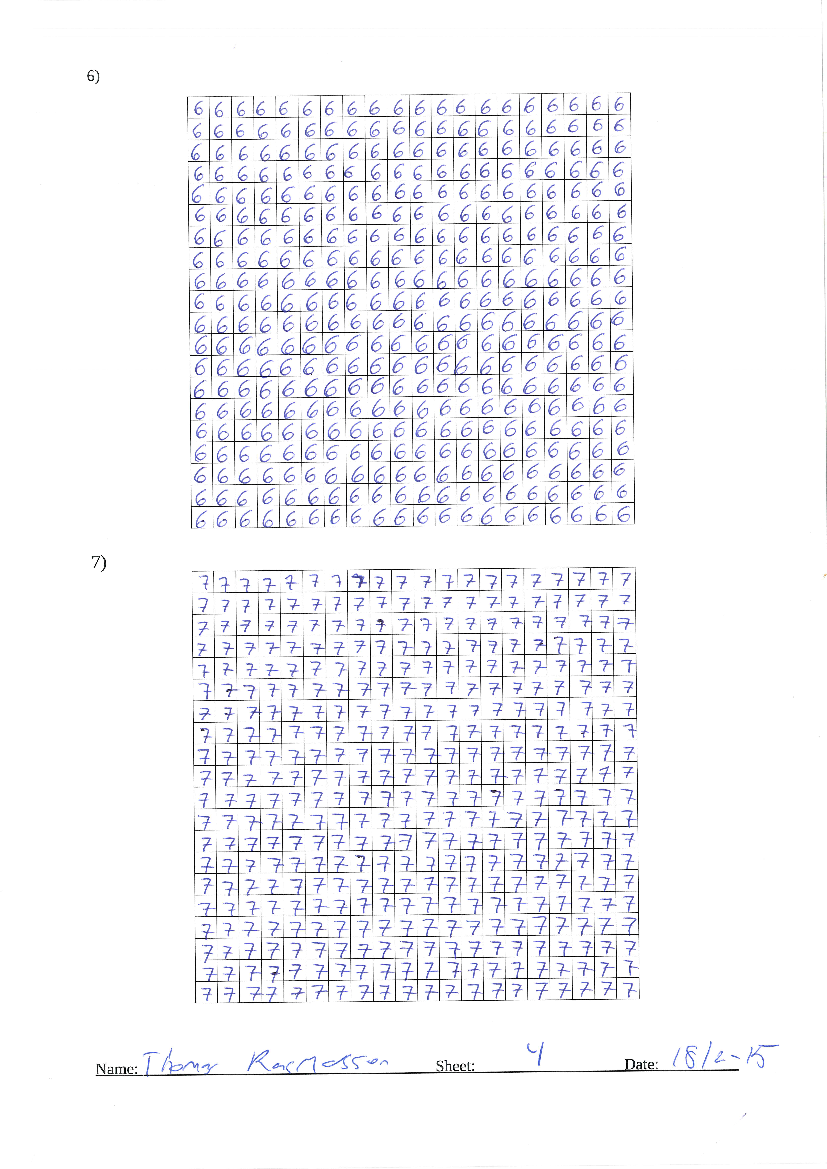 6)
6 6 6 6 6 6 6 6 6 6 6 6 6 6 6 6 6 6 6 6
6 6 6 6 6 6 6 6 6 6 6 6 6 6 6 6 6 6 6 6
6 6 6 6 6 6 6 6 6 6 6 6 6 6 6 6 6 6 6 6
6 6 6 6 6 6 6 6 6 6 6 6 6 6 6 6 6 6 6 6
6 6 6 6 6 6 6 6 6 6 6 6 6 6 6 6 6 6 6 6
6 6 6 6 6 6 6 6 6 6 6 6 6 6 6 6 6 6 6 6
6 6 6 6 6 6 6 6 6 6 6 6 6 6 6 6 6 6 6 6
6 6 6 6 6 6 6 6 6 6 6 6 6 6 6 6 6 6 6 6
6 6 6 6 6 6 6 6 6 6 6 6 6 6 6 6 6 6 6 6
6 6 6 6 6 6 6 6 6 6 6 6 6 6 6 6 6 6 6 6
6 6 6 6 6 6 6 6 6 6 6 6 6 6 6 6 6 6 6 6
6 6 6 6 6 6 6 6 6 6 6 6 6 6 6 6 6 6 6 6
6 6 6 6 6 6 6 6 6 6 6 6 6 6 6 6 6 6 6 6
6 6 6 6 6 6 6 6 6 6 6 6 6 6 6 6 6 6 6 6
6 6 6 6 6 6 6 6 6 6 6 6 6 6 6 6 6 6 6 6
6 6 6 6 6 6 6 6 6 6 6 6 6 6 6 6 6 6 6 6
6 6 6 6 6 6 6 6 6 6 6 6 6 6 6 6 6 6 6 6
6 6 6 6 6 6 6 6 6 6 6 6 6 6 6 6 6 6 6 6
6 6 6 6 6 6 6 6 6 6 6 6 6 6 6 6 6 6 6 6
6 6 6 6 6 6 6 6 6 6 6 6 6 6 6 6 6 6 6 6
7)
7 7 7 7 7 7 7 7 7 7 7 7 7 7 7 7 7 7 7 7
7 7 7 7 7 7 7 7 7 7 7 7 7 7 7 7 7 7 7 7
7 7 7 7 7 7 7 7 7 7 7 7 7 7 7 7 7 7 7 7
7 7 7 7 7 7 7 7 7 7 7 7 7 7 7 7 7 7 7 7
7 7 7 7 7 7 7 7 7 7 7 7 7 7 7 7 7 7 7 7
7 7 7 7 7 7 7 7 7 7 7 7 7 7 7 7 7 7 7 7
7 7 7 7 7 7 7 7 7 7 7 7 7 7 7 7 7 7 7 7
7 7 7 7 7 7 7 7 7 7 7 7 7 7 7 7 7 7 7 7
7 7 7 7 7 7 7 7 7 7 7 7 7 7 7 7 7 7 7 7
7 7 7 7 7 7 7 7 7 7 7 7 7 7 7 7 7 7 7 7
7 7 7 7 7 7 7 7 7 7 7 7 7 7 7 7 7 7 7 7
7 7 7 7 7 7 7 7 7 7 7 7 7 7 7 7 7 7 7 7
7 7 7 7 7 7 7 7 7 7 7 7 7 7 7 7 7 7 7 7
7 7 7 7 7 7 7 7 7 7 7 7 7 7 7 7 7 7 7 7
7 7 7 7 7 7 7 7 7 7 7 7 7 7 7 7 7 7 7 7
7 7 7 7 7 7 7 7 7 7 7 7 7 7 7 7 7 7 7 7
7 7 7 7 7 7 7 7 7 7 7 7 7 7 7 7 7 7 7 7
7 7 7 7 7 7 7 7 7 7 7 7 7 7 7 7 7 7 7 7
7 7 7 7 7 7 7 7 7 7 7 7 7 7 7 7 7 7 7 7
7 7 7 7 7 7 7 7 7 7 7 7 7 7 7 7 7 7 7 7
Name: Thomas Rasmussen Sheet: 4 Date: 18/2-15